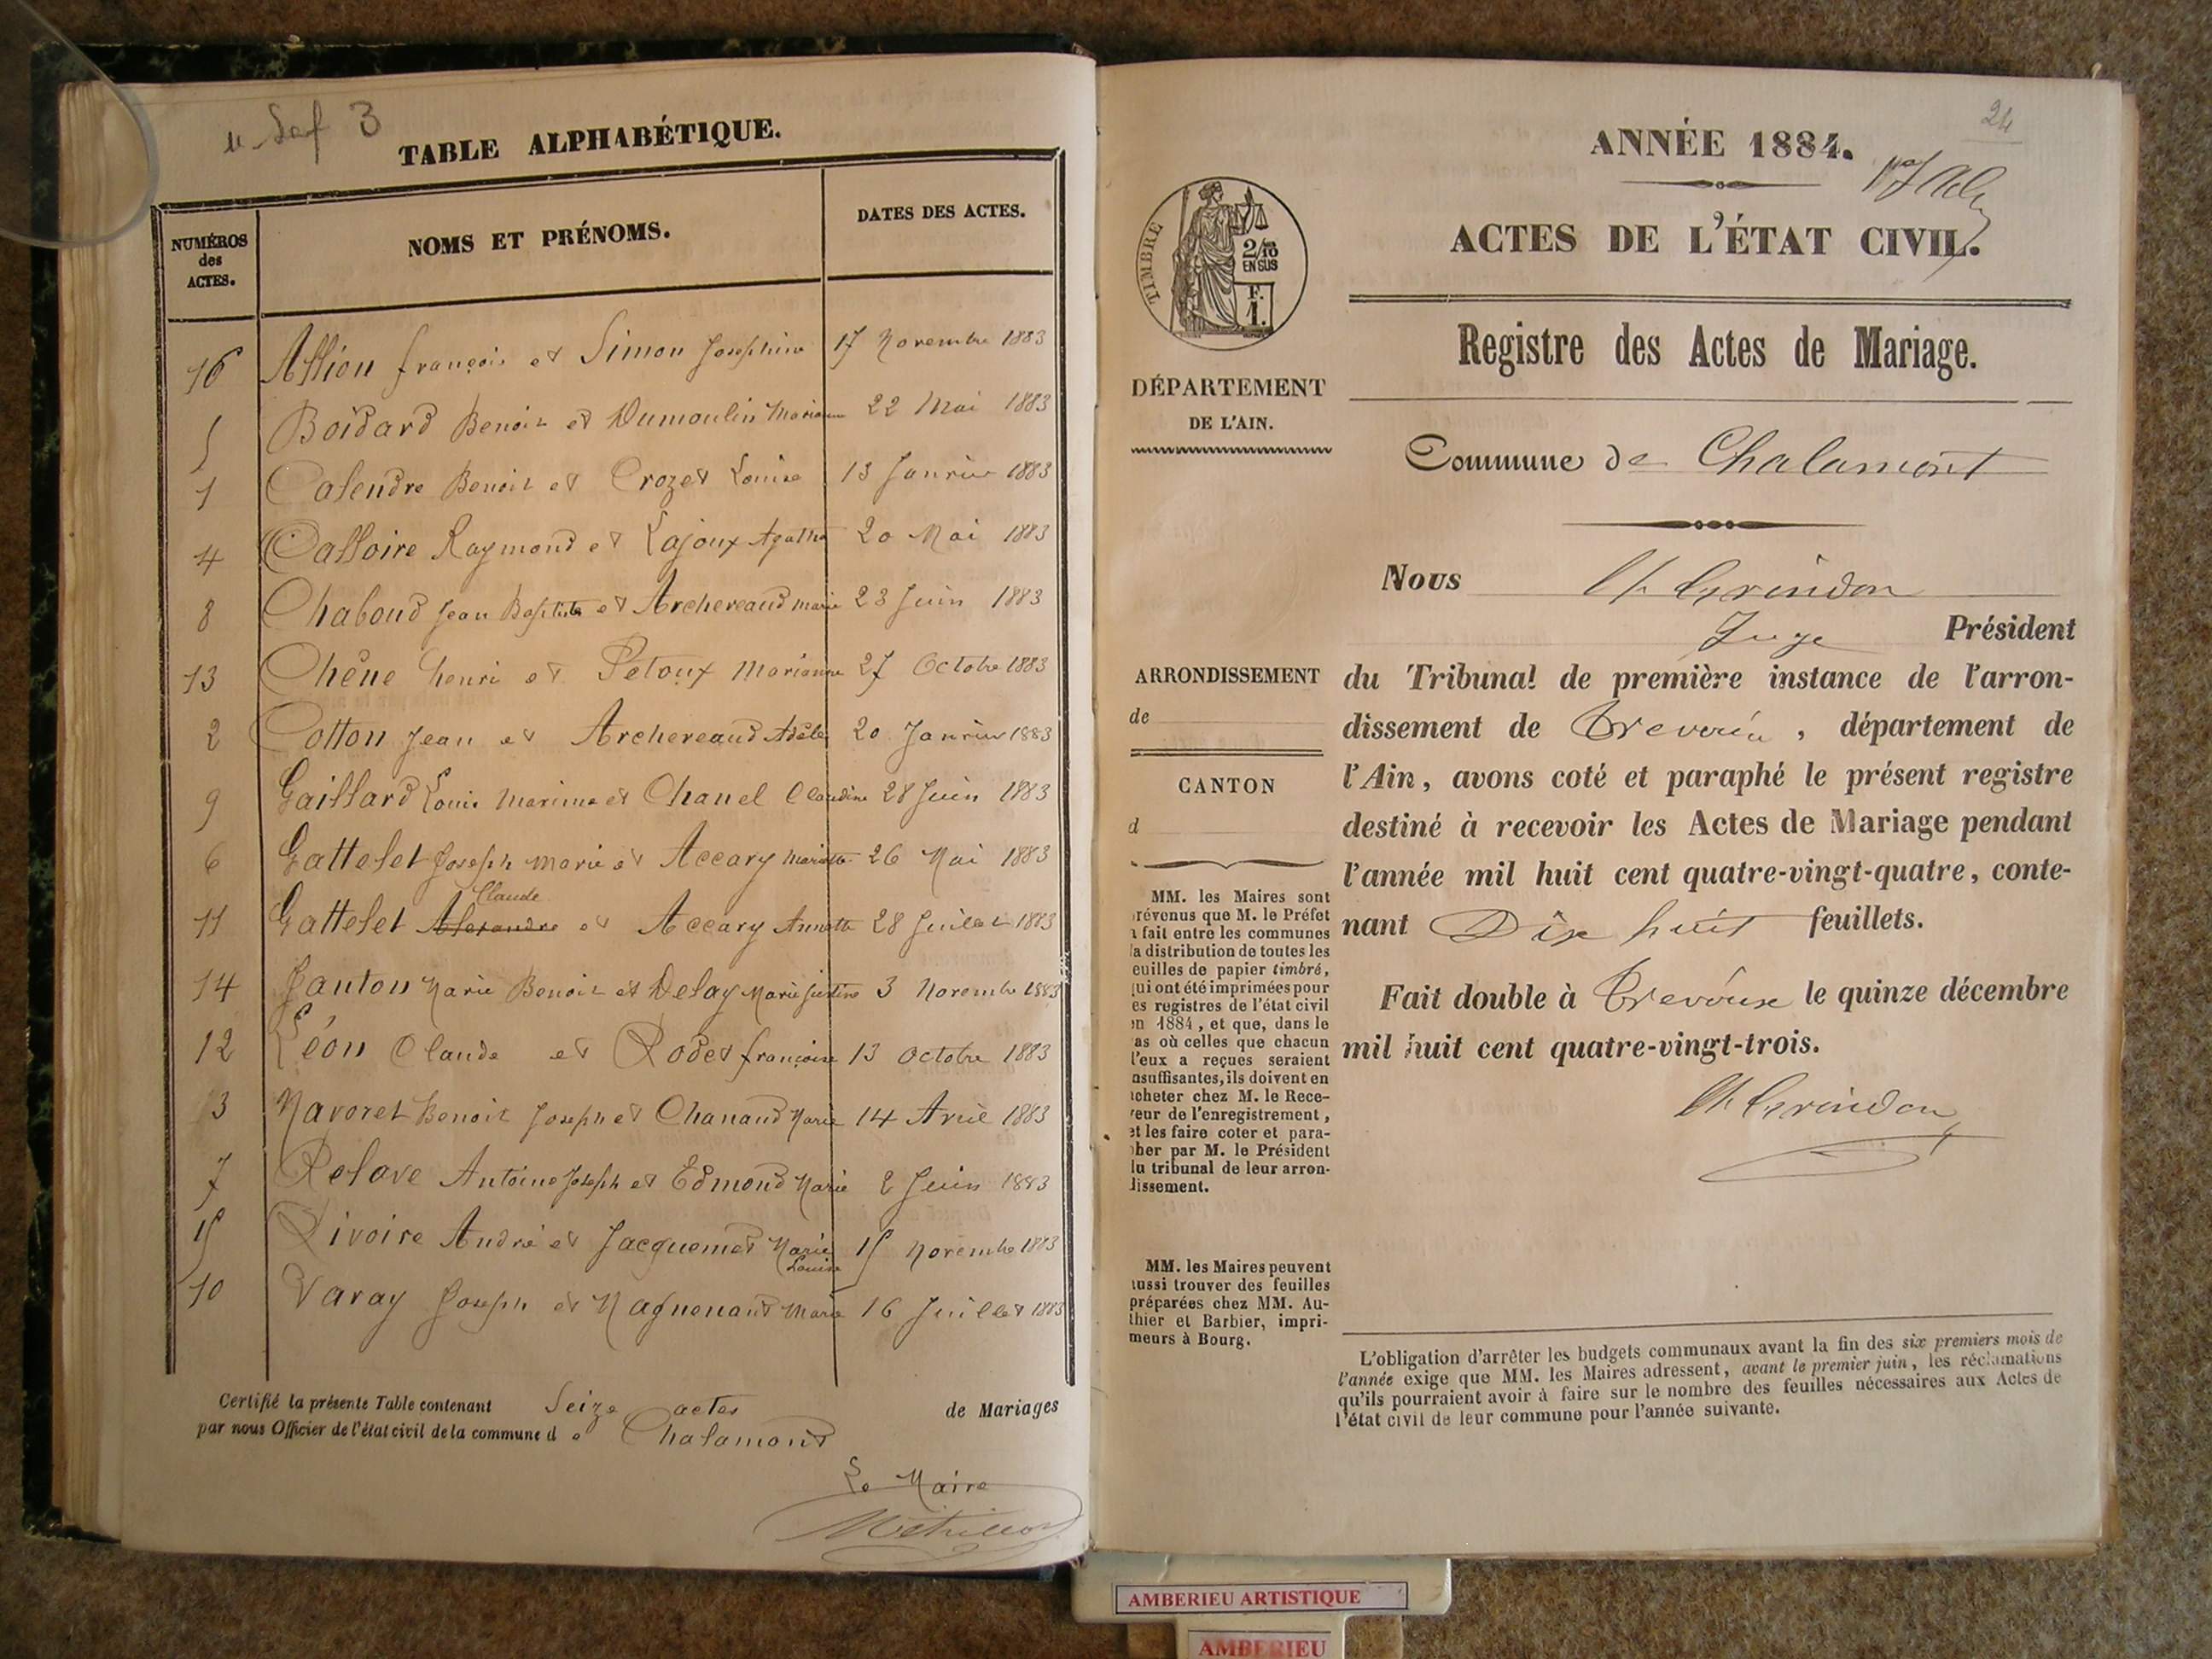 3
TABLE ALPHABÉTIQUE.
NUMÉROS
des
ACTES.
NOMS ET PRÉNOMS.
DATES DES ACTES.
16 Allion françois et Simon Josephine 17 Novembre 1883
5 Boidard Benoit et Dumoulin Marianne 22 Mai 1883
1 Calendre Benoit et Crozet Louise 13 Janvier 1883
4 Calloire Raymond et Lajoux Agathe 20 Mai 1883
8 Chaboud Jean Baptiste et Archereaud marie 23 Juin 1883
13 Chêne henri et Petoux Marianne 27 Octobre 1883
2 Cotton Jean et Archereaud Adèle 20 Janvier 1883
9 Gaillard Louis Marime et Chanel Claudine 28 Juin 1883
6 Gattelet Joseph Marie et Accary Mariette 26 Mai 1883
Claude
11 Gattelet Alexandre et Accary Annette 28 Juillet 1883
14 Janton Marie Benoit et Delay Marie Justine 3 Novembre 1883
12 Léon Claude et Rodet françoise 13 Octobre 1883
3 Navoret Benoit Joseph et Chanaud Marie 14 Avril 1883
7 Relave Antoine Joseph et Edmond Marie 2 Juin 1883
15 Rivoire André et Jacquemet Marie 15 Novembre 1883
Louise
10 Varay Joseph et Magnenand Marie 16 Juillet 1883
Certifié la présente Table contenant Seize actes de Mariages
par nous Officier de l'état civil de la commune de Chalamont
Le Maire
24
ANNÉE 1884.
ACTES DE L'ÉTAT CIVIL.
TIMBRE
2/10
EN SUS
F.
1.
Registre des Actes de Mariage.
DÉPARTEMENT
DE L'AIN.
Commune de Chalamont
Nous Ch. Grindon
Juge Président
ARRONDISSEMENT
de
CANTON
d
du Tribunal de première instance de l'arron-
dissement de Trevoux, département de
l'Ain, avons coté et paraphé le présent registre
destiné à recevoir les Actes de Mariage pendant
l'année mil huit cent quatre-vingt-quatre, conte-
nant Dix huit feuillets.
Fait double à Trevoux le quinze décembre
mil huit cent quatre-vingt-trois.
Ch. Grindon
MM. les Maires sont
révenus que M. le Préfet
a fait entre les communes
la distribution de toutes les
euilles de papier timbré,
qui ont été imprimées pour
es registres de l'état civil
en 1884, et que, dans le
as où celles que chacun
l'eux a reçues seraient
nsuffisantes, ils doivent en
cheter chez M. le Rece-
veur de l'enregistrement,
et les faire coter et para-
pher par M. le Président
lu tribunal de leur arron-
dissement.
MM. les Maires peuvent
aussi trouver des feuilles
préparées chez MM. Au-
thier et Barbier, impri-
meurs à Bourg.
L'obligation d'arrêter les budgets communaux avant la fin des six premiers mois de
l'année exige que MM. les Maires adressent, avant le premier juin, les réclamations
qu'ils pourraient avoir à faire sur le nombre des feuilles nécessaires aux Actes de
l'état civil de leur commune pour l'année suivante.
AMBERIEU ARTISTIQUE
AMBERIEU